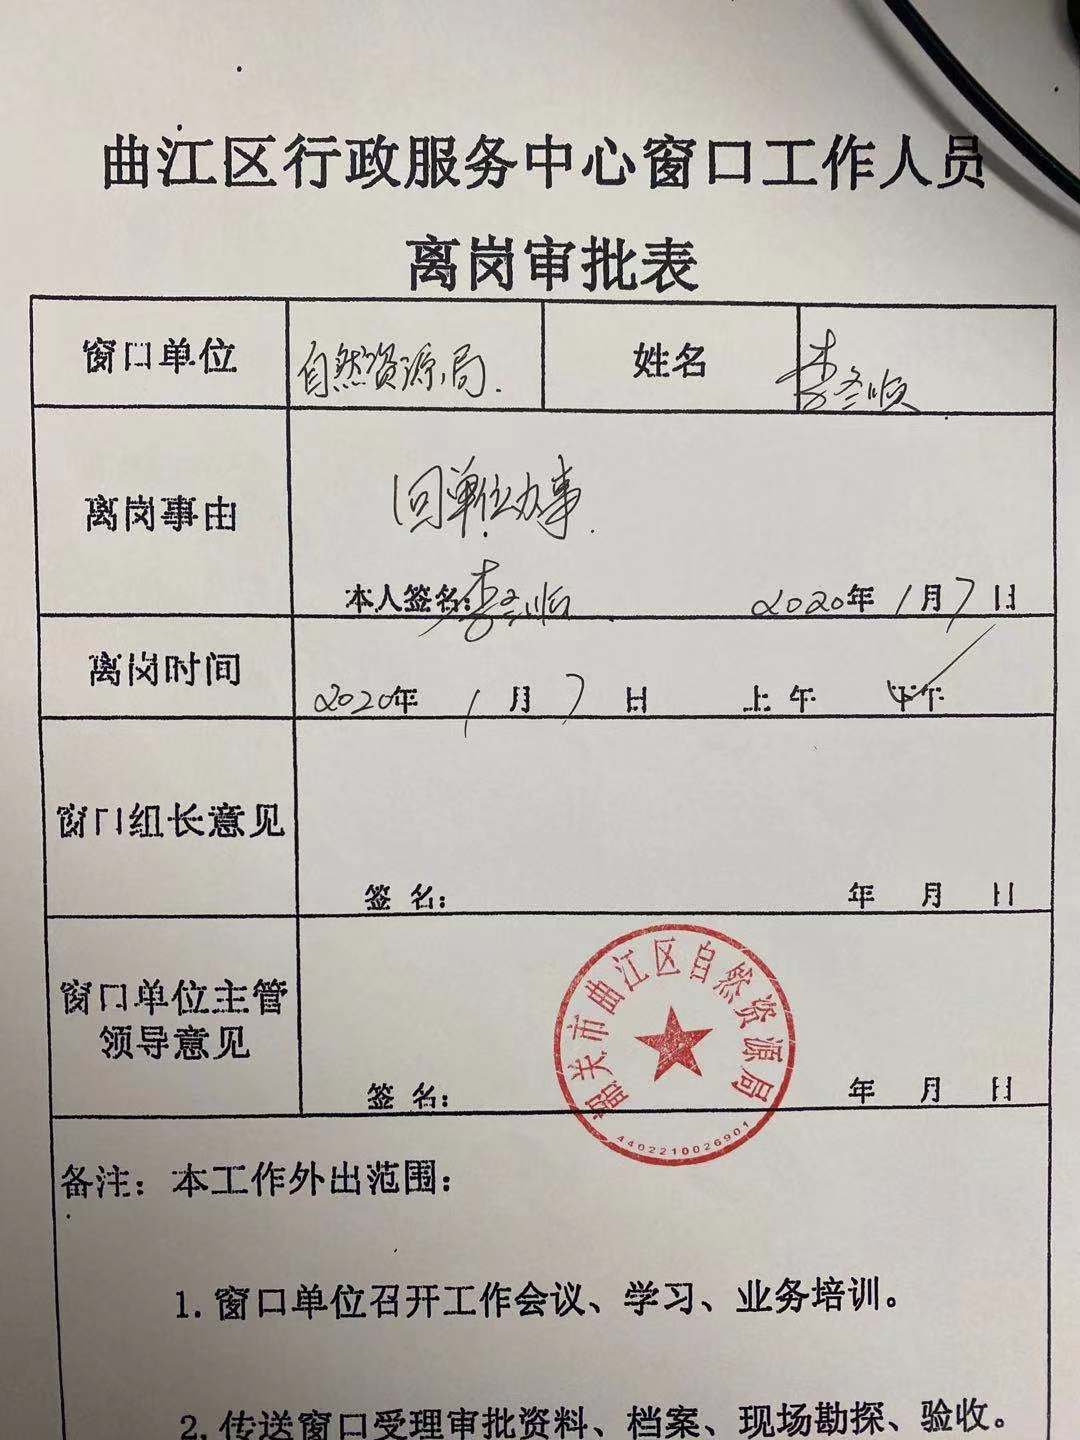 曲江区行政服务中心窗口工作人员
离岗审批表
窗口单位 自然资源局. 姓名 李冬顺
离岗事由 回单位办事.
本人签名:李冬顺 2020年1月7日
离岗时间 2020年1月7日 上午 下午
窗口组长意见
签名: 年 月 日
窗口单位主管
领导意见
签名: 年 月 日
韶关市曲江区自然资源局
4402210026901
备注:本工作外出范围:
1.窗口单位召开工作会议、学习、业务培训。
2.传送窗口受理审批资料、档案、现场勘探、验收。